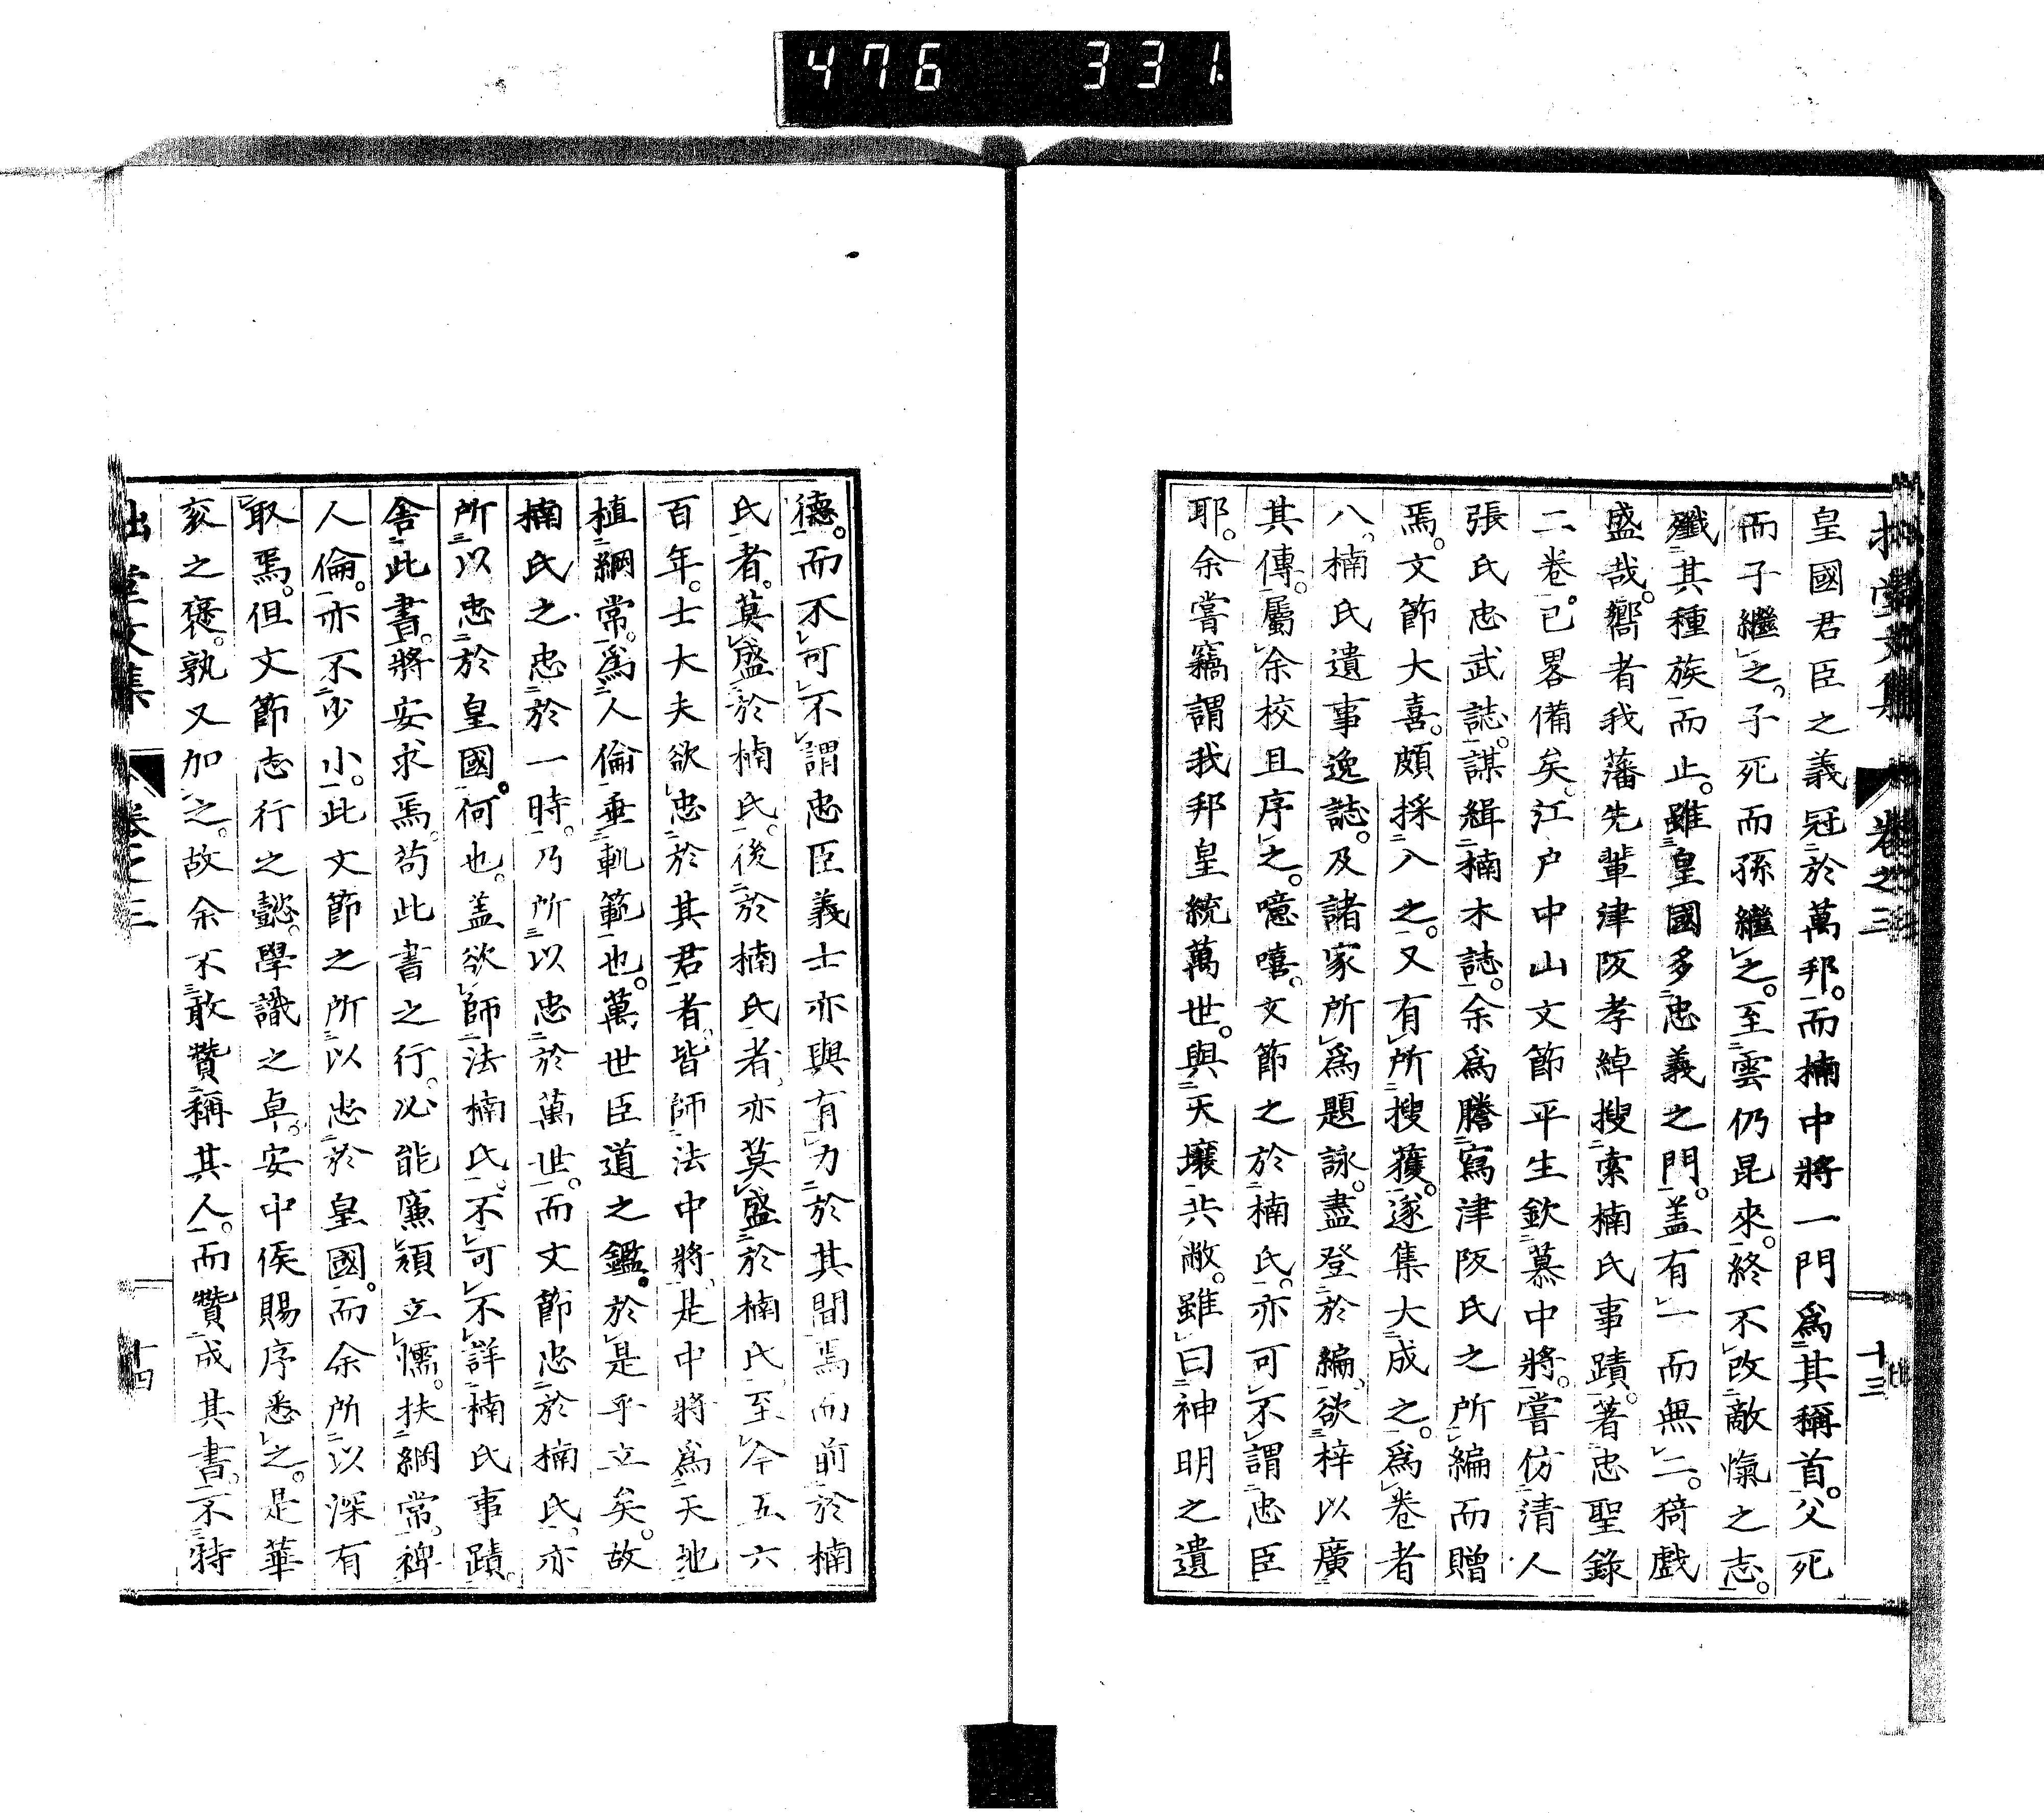 476 331.
卷之三 十三
皇國君臣之義冠於萬邦。而楠中將一門爲其稱首。父死
而子繼之。子死而孫繼之。至雲仍昆來。終不改敵愾之志。
殲其種族而止。雖皇國多忠義之門。盖有一而無二。猗戲
盛哉。嚮者我藩先輩津阪孝綽搜索楠氏事蹟。著忠聖錄
二卷。已畧備矣。江戶中山文節平生欽慕中將。嘗仿清人
張氏忠武誌。謀緝楠木誌。余爲謄寫津阪氏之所編而贈
焉。文節大喜。頗採入之。又有所搜獲。遂集大成之。爲卷者
八、楠氏遺事逸誌。及諸家所爲題詠。盡登於編、欲梓以廣
其傳。屬余校且序之。噫嘻。文節之於楠氏。亦可不謂忠臣
耶。余嘗竊謂我邦皇統萬世。與天壤共敝。雖曰神明之遺
德。而不可不謂忠臣義士亦與有力於其間焉而前於楠
氏者。莫盛於楠氏。後於楠氏者、亦莫盛於楠氏、至今五六
百年。士大夫欲忠於其君者、皆師法中將、是中將爲天地
植綱常。爲人倫垂軌範也。萬世臣道之鑑。於是乎立矣。故
楠氏之忠於一時。乃所以忠於萬世。而文節忠於楠氏、亦
所以忠於皇國。何也。盖欲師法楠氏。不可不詳楠氏事蹟。
舍此書。將安求焉。苟此書之行。必能廉頑立懦。扶綱常。裨
人倫。亦不少小。此文節之所以忠於皇國。而余所以深有
取焉。但文節志行之懿。學識之卓。安中侯賜序悉之。是華
衮之褒。孰又加之。故余不敢贊稱其人。而贊成其書。不特
拙堂文集 卷之三 十四